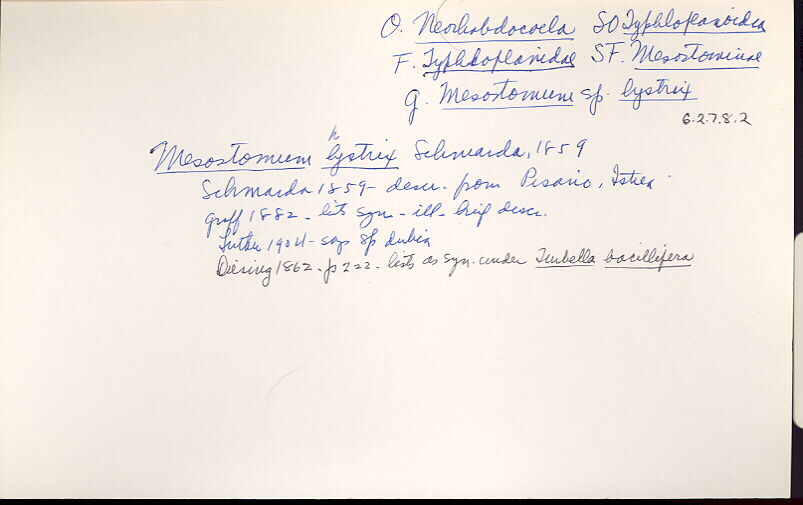 O. Neorhabdocoela SO Typhloplanoidea
F. Typhloplanidae SF. Mesostominae
g. Mesostomum sp. hystrix
6.2.7.8.2
Mesostomum hystrix Schmarda, 1859
Schmarda 1859 - descr. from Pisano, Istria
Graff 1882 - lits syn - ill - brief descr.
Luther 1904 - says sp dubia
Diesing 1862 - p 222 - lists as syn. under Turbella bacillifera